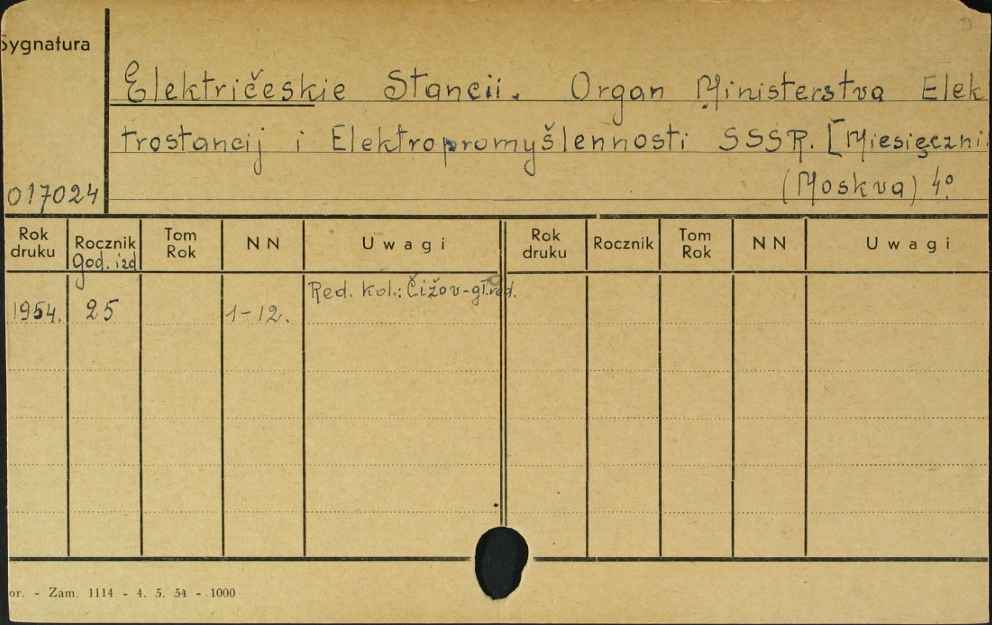 Sygnatura
Električeskie Stancii. Organ Ministerstva Elek
trostancij i Elektropromyšlennosti SSSR. [Miesięczni
017024
(Moskva) 4°
Rok druku Rocznik Tom Rok NN Uwagi Rok druku Rocznik Tom Rok NN Uwagi
god. izd
Red. kol.: Čižov-gł.red.
1954. 25 1-12.
or. - Zam. 1114 - 4. 5. 54 - 1000